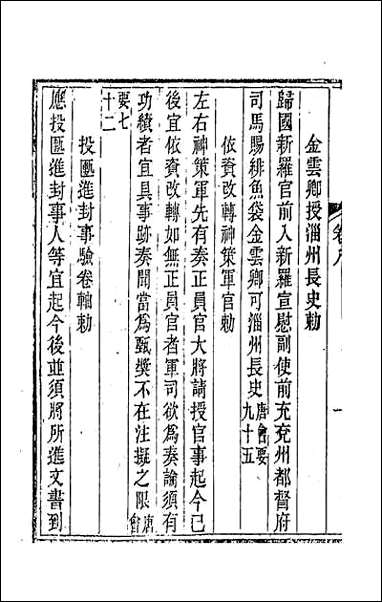 金雲卿授淄州長史勅
歸國新羅官前入新羅宣慰副使前充兗州都督府
司馬賜緋魚袋金雲卿可淄州長史唐會要九十五
依資改轉神策軍官勅
左右神策軍先有奏正員官大將請授官事起今已
後宜依資改轉如無正員官者軍司欲爲奏論須有
功績者宜具事跡奏聞當爲甄奬不在注擬之限唐會
要七十二
投匭進封事驗卷軸勅
應投匭進封事人等宜起今後並須將所進文書到